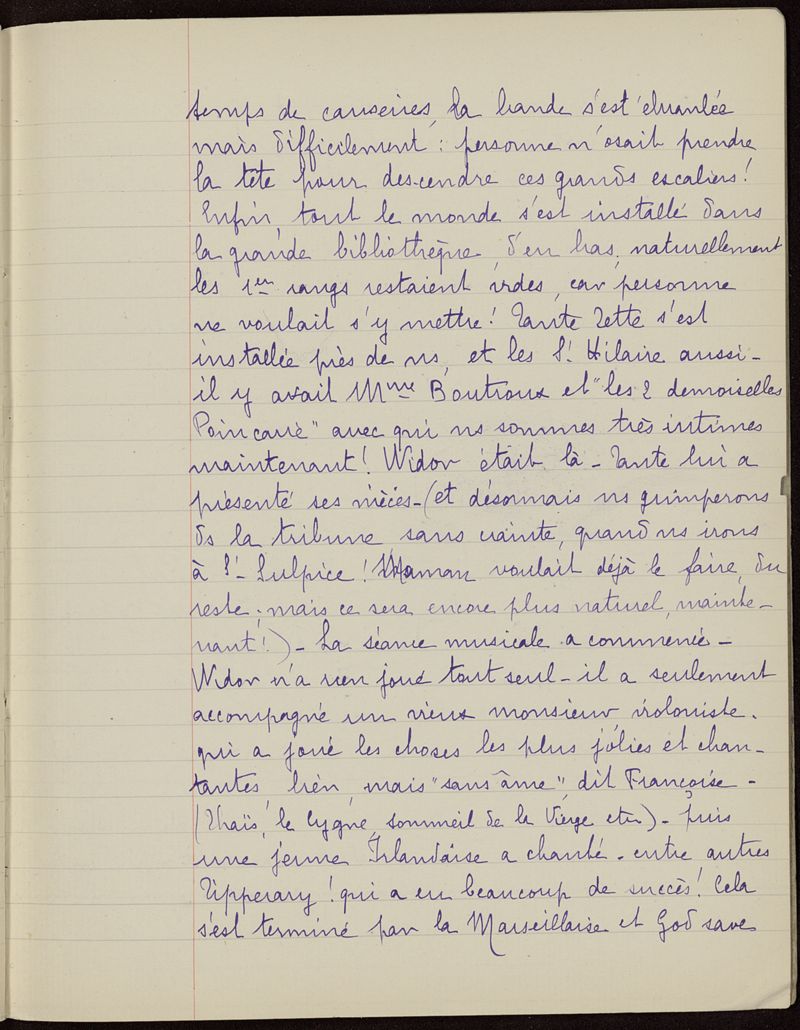 temps de causeries, la bande s'est ébranlée
mais difficilement : personne n'osait prendre
la tête pour descendre ces grands escaliers !
Enfin, tout le monde s'est installé dans
la grande bibliothèque, d'en bas, naturellement
les 1ers rangs restaient vides, car personne
ne voulait s'y mettre ! Tante Zette s'est
installée près de ns, et les St Hilaire aussi -
il y avait Mme Boutroux et "les 2 demoiselles
Poincaré" avec qui ns sommes très intimes
maintenant ! Widor était là - Tante lui a
présenté ses nièces - (et désormais ns grimperons
ds la tribune sans crainte, quand ns irons
à St-Sulpice ! Maman voulait déjà le faire, du
reste ; mais ce sera encore plus naturel, mainte-
nant !) - La séance musicale a commencé -
Widor n'a rien joué tout seul - il a seulement
accompagné un vieux monsieur, violoniste.
qui a joué les choses les plus jolies et chan-
tantes bien, mais "sans âme", dit Françoise -
(Thaïs, le Cygne, sommeil de la Vierge etc) - puis
une jeune Irlandaise a chanté - entre autres
Tipperary ! qui a eu beaucoup de succès ! Cela
s'est terminé par la Marseillaise et God save